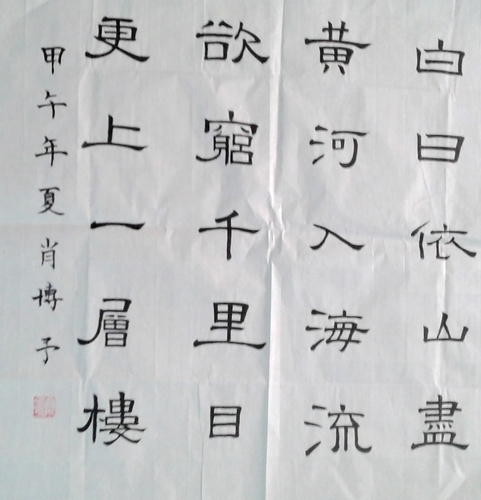 白日依山盡
黃河入海流
欲窮千里目
更上一層樓
甲午年夏肖博予